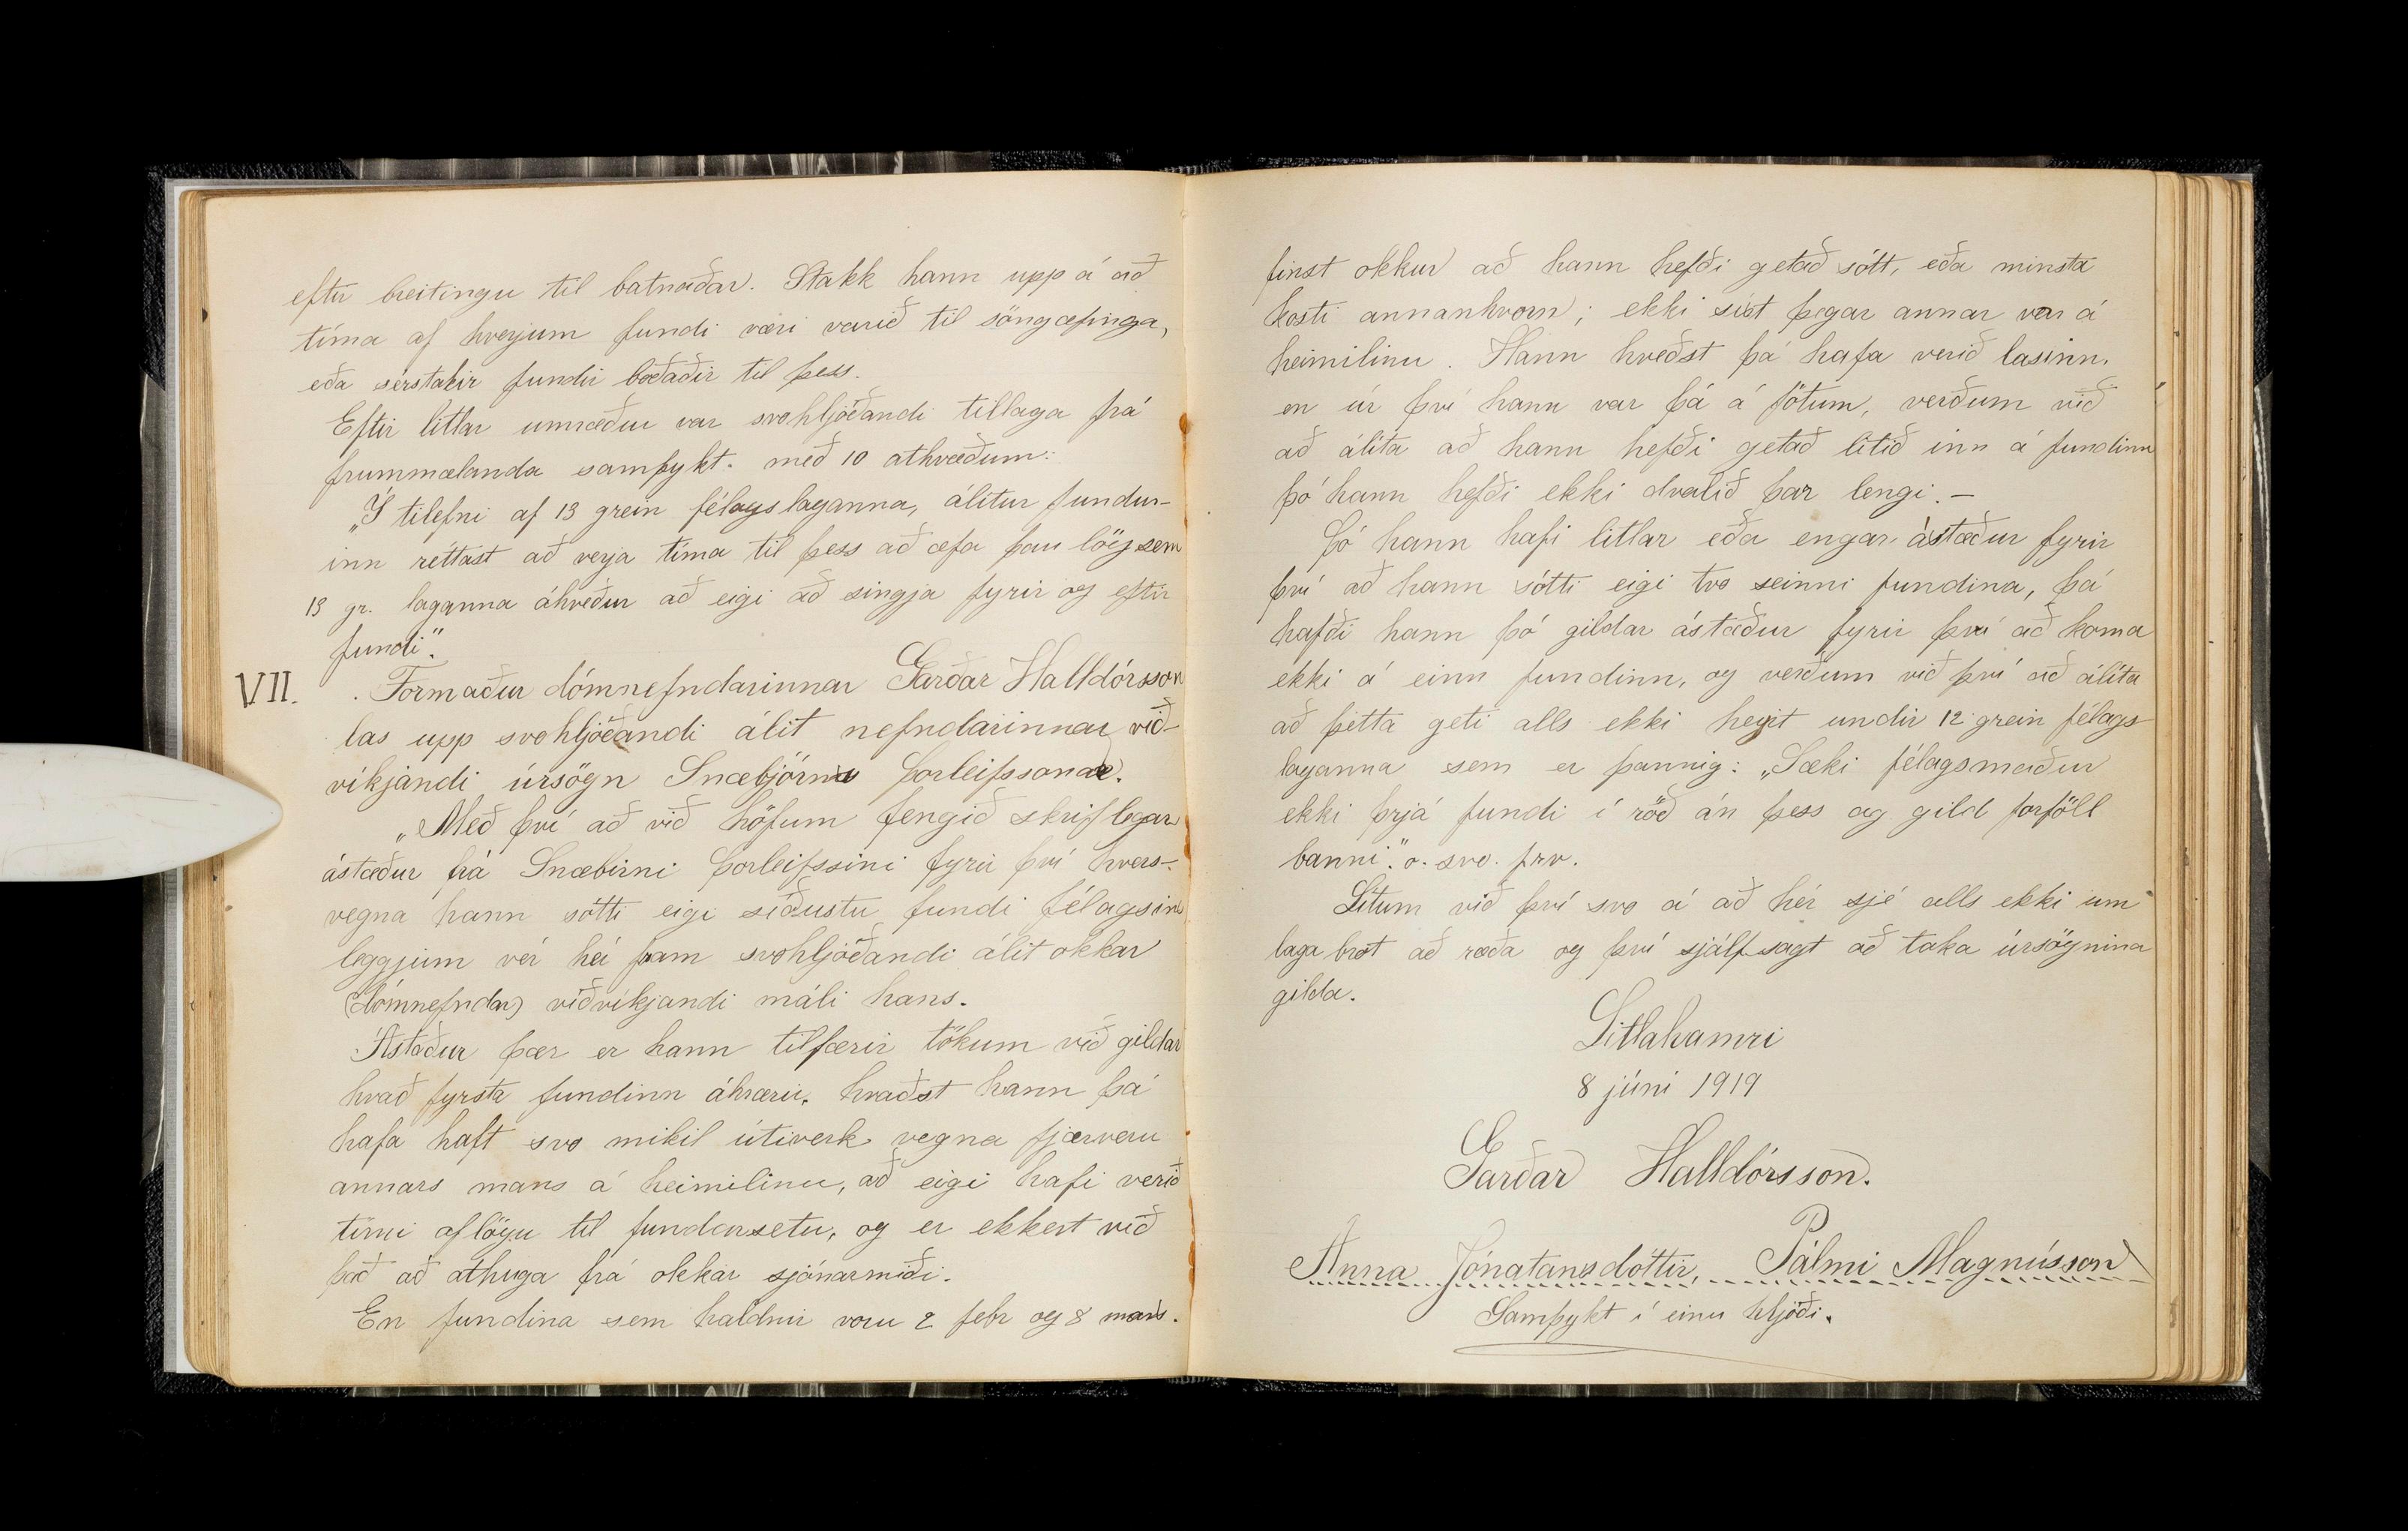 eftir breitingu til batnaðar. Stakk hann upp á að
tíma af hverjum fundi væri varið til söngæfinga,
eða sérstakir fundir boðaðir til þess.
Eftir litlar umræður var svohljóðandi tillaga frá
frummælanda samþykt. með 10 athvæðum:
„Í tilefni af 13 grein félagslaganna, álítur fundur-
inn réttast að verja tíma til þess að æfa þau lög sem
13 gr. laganna ákveður að eigi að singja fyrir og eftir
fundi".
VII. Formaður dómnefndarinnar Garðar Halldórsson
las upp svohljóðandi álit nefndarinnar við-
víkjandi úrsögn Snæbjörns Þorleifssonar.
„Með því að við höfum fengið skriflegar
ástæður frá Snæbirni Þorleifssini fyrir því hvers-
vegna hann sótti eigi síðustu fundi félagsins
leggjum vér hér fram svohljóðandi álit okkar
(dómnefndar) viðvíkjandi máli hans.
Ástæður þær er hann tilfærir tökum við gildar
hvað fyrsta fundinn áhrærir. kvaðst hann þá
hafa haft svo mikil útiverk vegna fjærveru
annars mans á heimilinu, að eigi hafi verið
tími aflögu til fundarsetu, og er ekkert við
það að athuga frá okkar sjónarmiði.
En fundina sem haldnir voru 2 febr og 8 mars.
finst okkur að hann hefði getað sótt, eða minsta
kosti annanhvorn; ekki síst þegar annar var á
heimilinu. Hann kveðst þá hafa verið lasinn,
en úr því hann var þá á fótum, verðum við
að álíta að hann hefði getað litið inn á fundinn
þó hann hefði ekki dvalið þar lengi. –
Þó hann hafi litlar eða engar ástæður fyrir
því að hann sótti eigi tvo seinni fundina, þá
hafði hann þó gildar ástæður fyrir því að koma
ekki á einn fundinn, og verðum við því að álíta
að þetta geti alls ekki heyrt undir 12 grein félags
laganna sem er þannig: „Sæki félagsmaður
ekki þrjá fundi í röð án þess ag gild forföll
banni". o. svo. frv.
Lítum við því svo á að hér sjé alls ekki um
laga brot að ræða og því sjálfsagt að taka úrsögnina
gilda.
Litlahamri
8 júní 1919
Garðar Halldórsson.
Anna Jónatansdóttir, Pálmi Magnússon
Samþykt í einu hljóði.